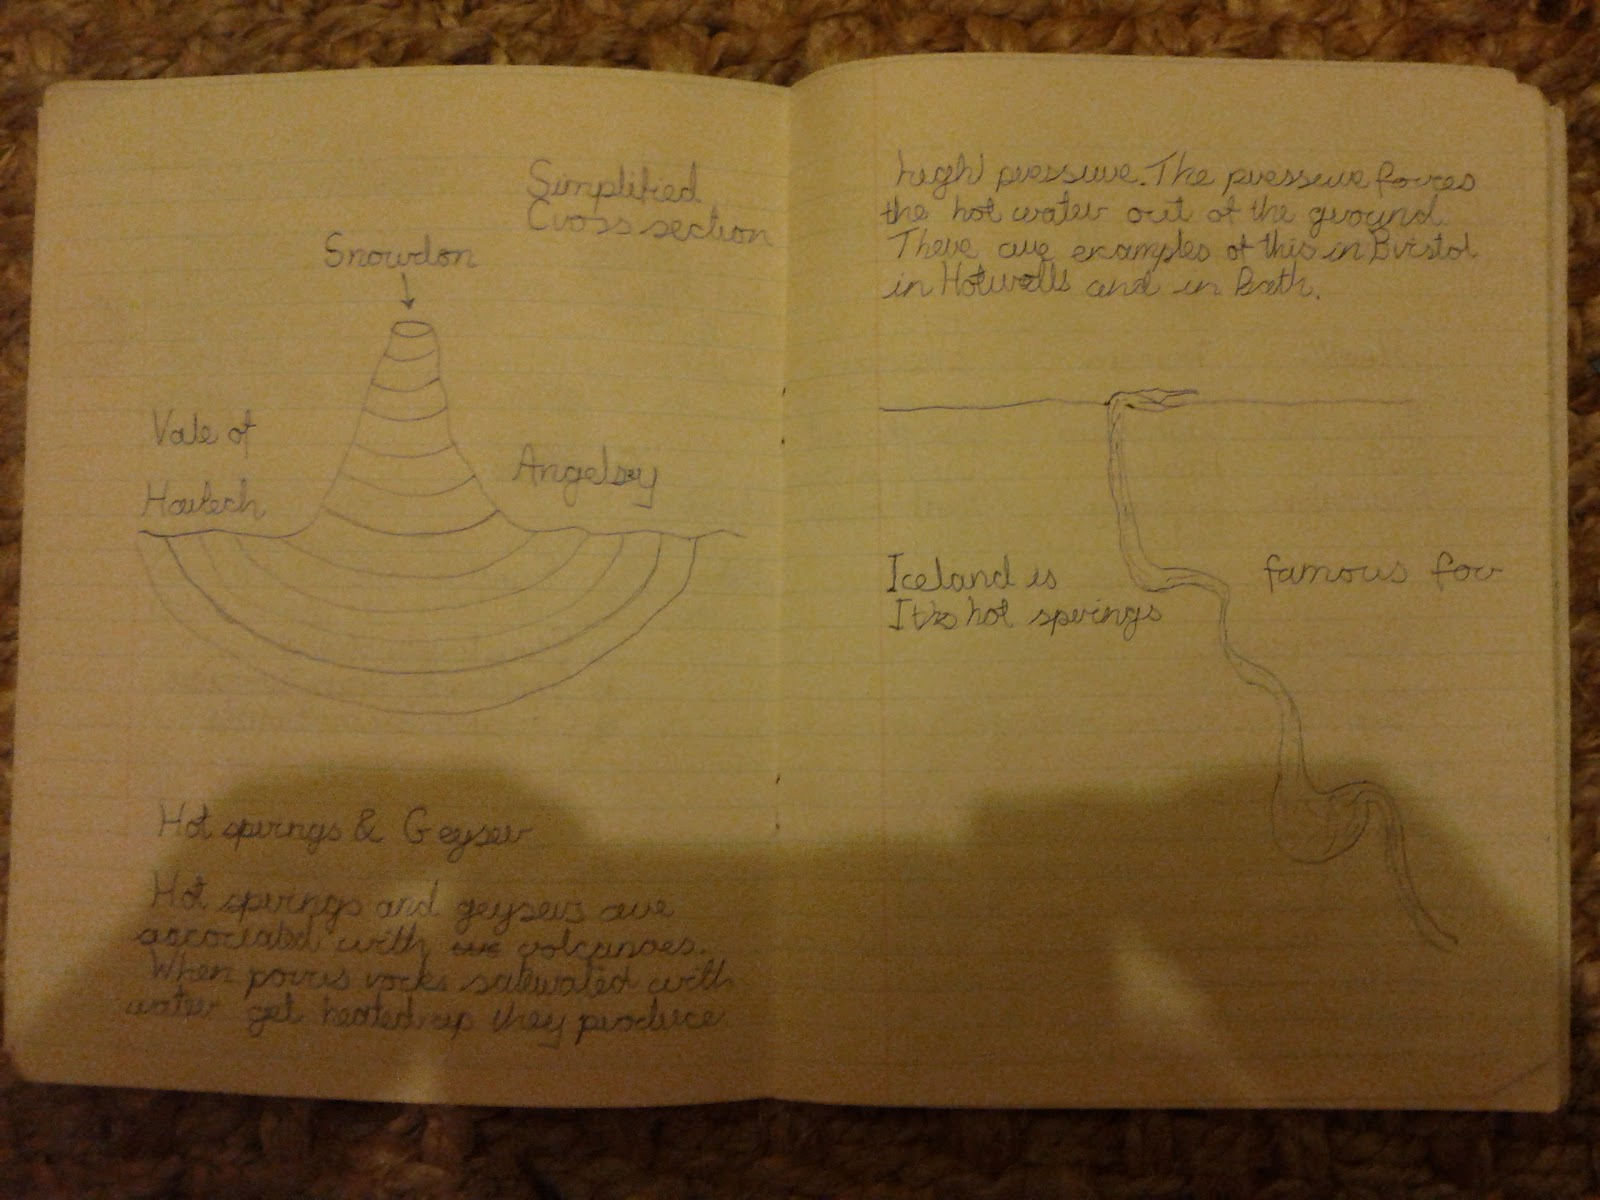 Simplified
Cross section
Snowdon
Vale of
Harlech
Angelsey
Hot springs & Geyser
Hot springs and geysers are
associated with are volcanoes.
When porris rocks saturated with
water get heated up they produce
high pressure. The pressure forces
the hot water out of the ground.
There are examples of this in Bristol
in Hotwells and in Bath.
Iceland is famous for
It's hot springs